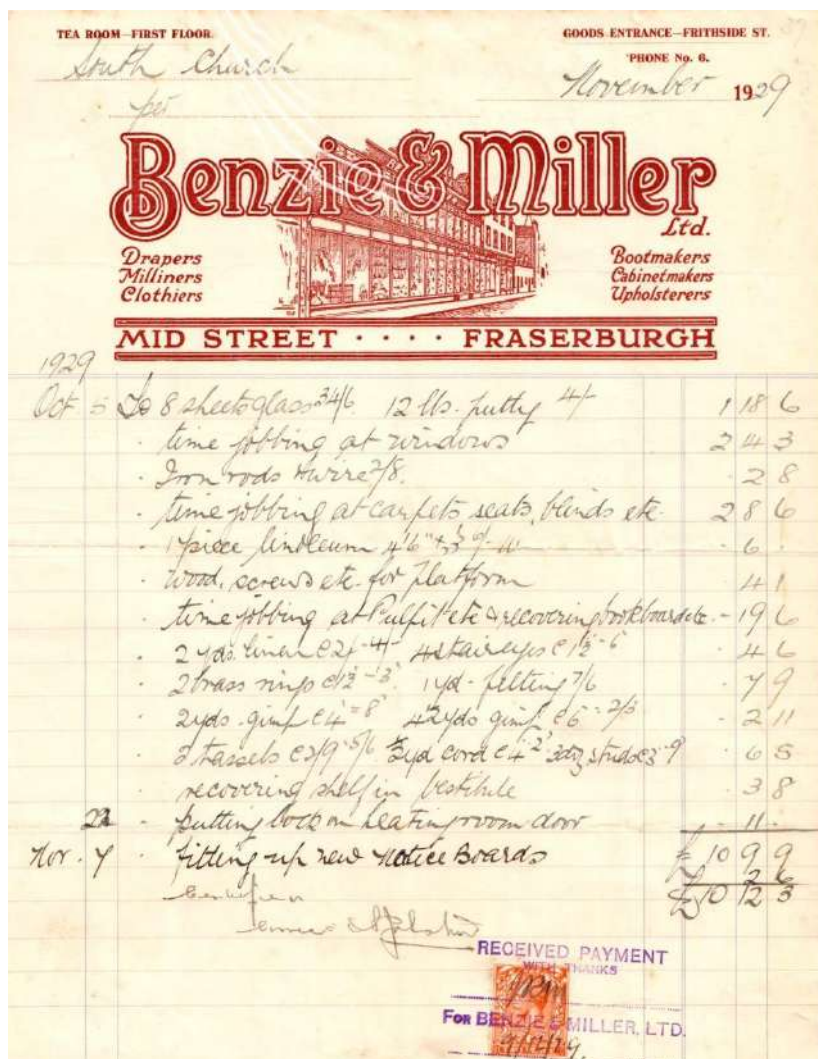 TEA ROOM—FIRST FLOOR.
GOODS ENTRANCE—FRITHSIDE ST.
'PHONE No. 6.
South Church
November 1929
per
Benzie & Miller
Ltd.
Drapers
Milliners
Clothiers
Bootmakers
Cabinetmakers
Upholsterers
MID STREET · · · · FRASERBURGH
1929
Oct 5 To 8 sheets glass 34/6 12 lbs. putty 4/- 1 18 6
· time jobbing at windows 2 4 3
· Iron rods & wire 2/8. · 2 8
· time jobbing at carpets, seats, blinds etc. 2 8 6
· 1 piece linoleum · 6 ·
· wood, screws etc. for Platform 4 1
· time jobbing at Pulpit etc & recovering bookboard etc. - 19 6
· 2 yds. linen @ 2/- 4/- 4 stair eyes @ 1½ - 6 · 4 6
· 2 brass rings @ 1½ - 3 1 yd. felting 7/6 · 7 9
· 2 yds. gimp @ 4 = 8 4½ yds gimp @ 6 = 2/3 · 2 11
· 2 tassels @ 2/9 - 5/6 ½ yd cord @ 4 - 2 3 doz studs @ 3 - 9 · 6 5
· recovering shelf in Vestibule · 3 8
22 · putting lock on heating room door · 11 ·
Nov. 7 · fitting up new Notice Boards £10 9 9
2 6
£10 12 3
RECEIVED PAYMENT
WITH THANKS
FOR BENZIE & MILLER, LTD.
9/12/29.